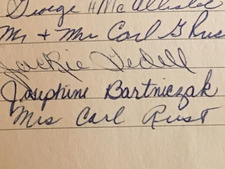 George H McAllister
Mr + Mrs Carl G Rus
Jackie Dedell
Josephine Bartniczak
Mrs Carl Rust